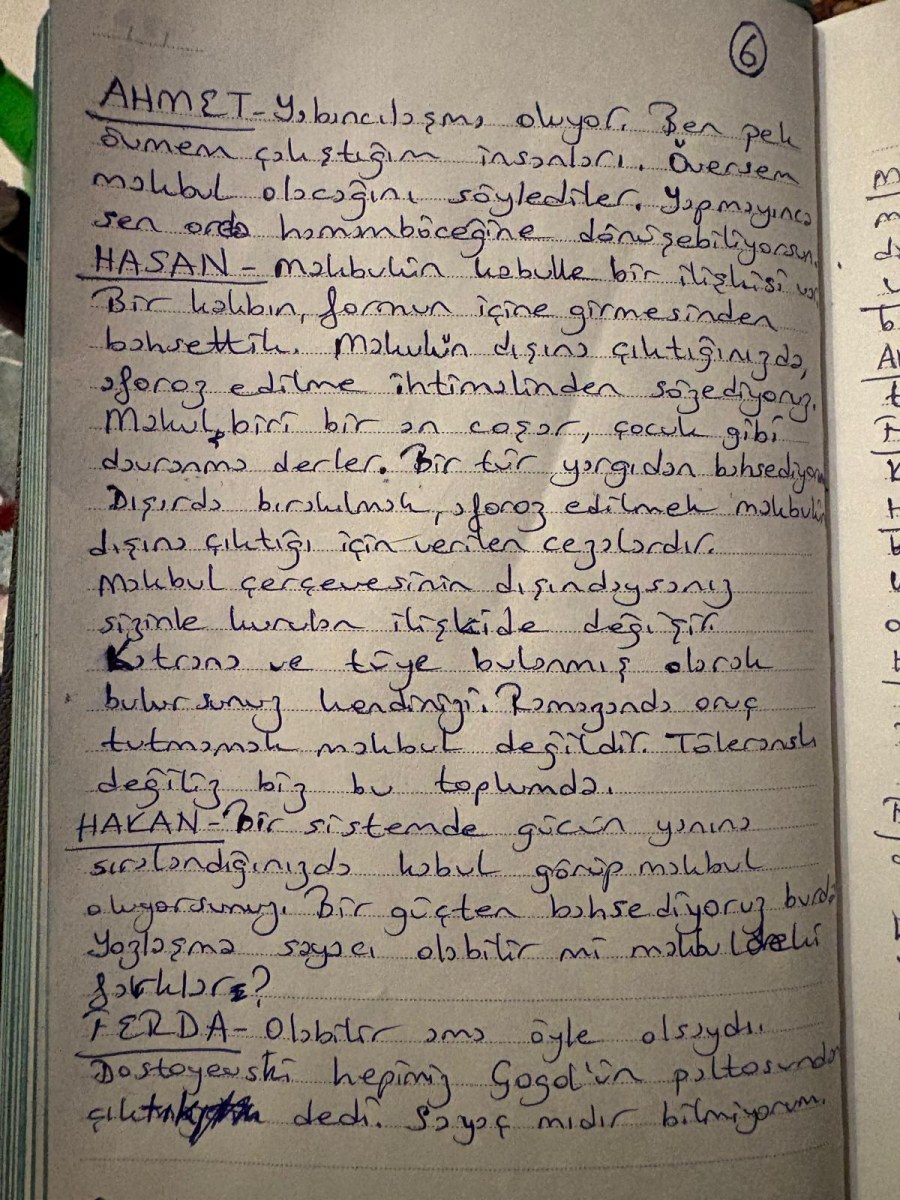 6
AHMET- Yabancılaşma oluyor. Ben pek
övmem çalıştığım insanları. Översem
makbul olacağını söylediler. Yapmayınca
sen orda hamamböceğine dönüşebiliyorsun.
HASAN- Makbulün kabulle bir ilişkisi var
Bir kalıbın, formun içine girmesinden
bahsettik. Makulün dışına çıktığınızda,
aforoz edilme ihtimalinden sözediyoruz.
Makul biri bir an coşar, çocuk gibi
davranma derler. Bir tür yargıdan bahsediyoruz
Dışırda bırakılmak, aforoz edilmek makbulün
dışına çıktığı için verilen cezalardır.
Makbul çerçevesinin dışındaysanız
sizinle kurulan ilişkide değişir.
Katrana ve tüye bulanmış olarak
bulursunuz kendinizi. Ramazanda oruç
tutmamak makbul değildir. Töleranslı
değiliz biz bu toplumda.
HAKAN- Bir sistemde gücün yanına
sıralandığınızda kabul görüp makbul
oluyorsunuz. Bir güçten bahsediyoruz burda
Yozlaşma sayacı olabilir mi makuldeki
farklar?
FERDA- Olabilir ama öyle olsaydı.
Dostoyevski hepimiz Gogol'ün paltosundan
çıktık dedi. Sayaç mıdır bilmiyorum.